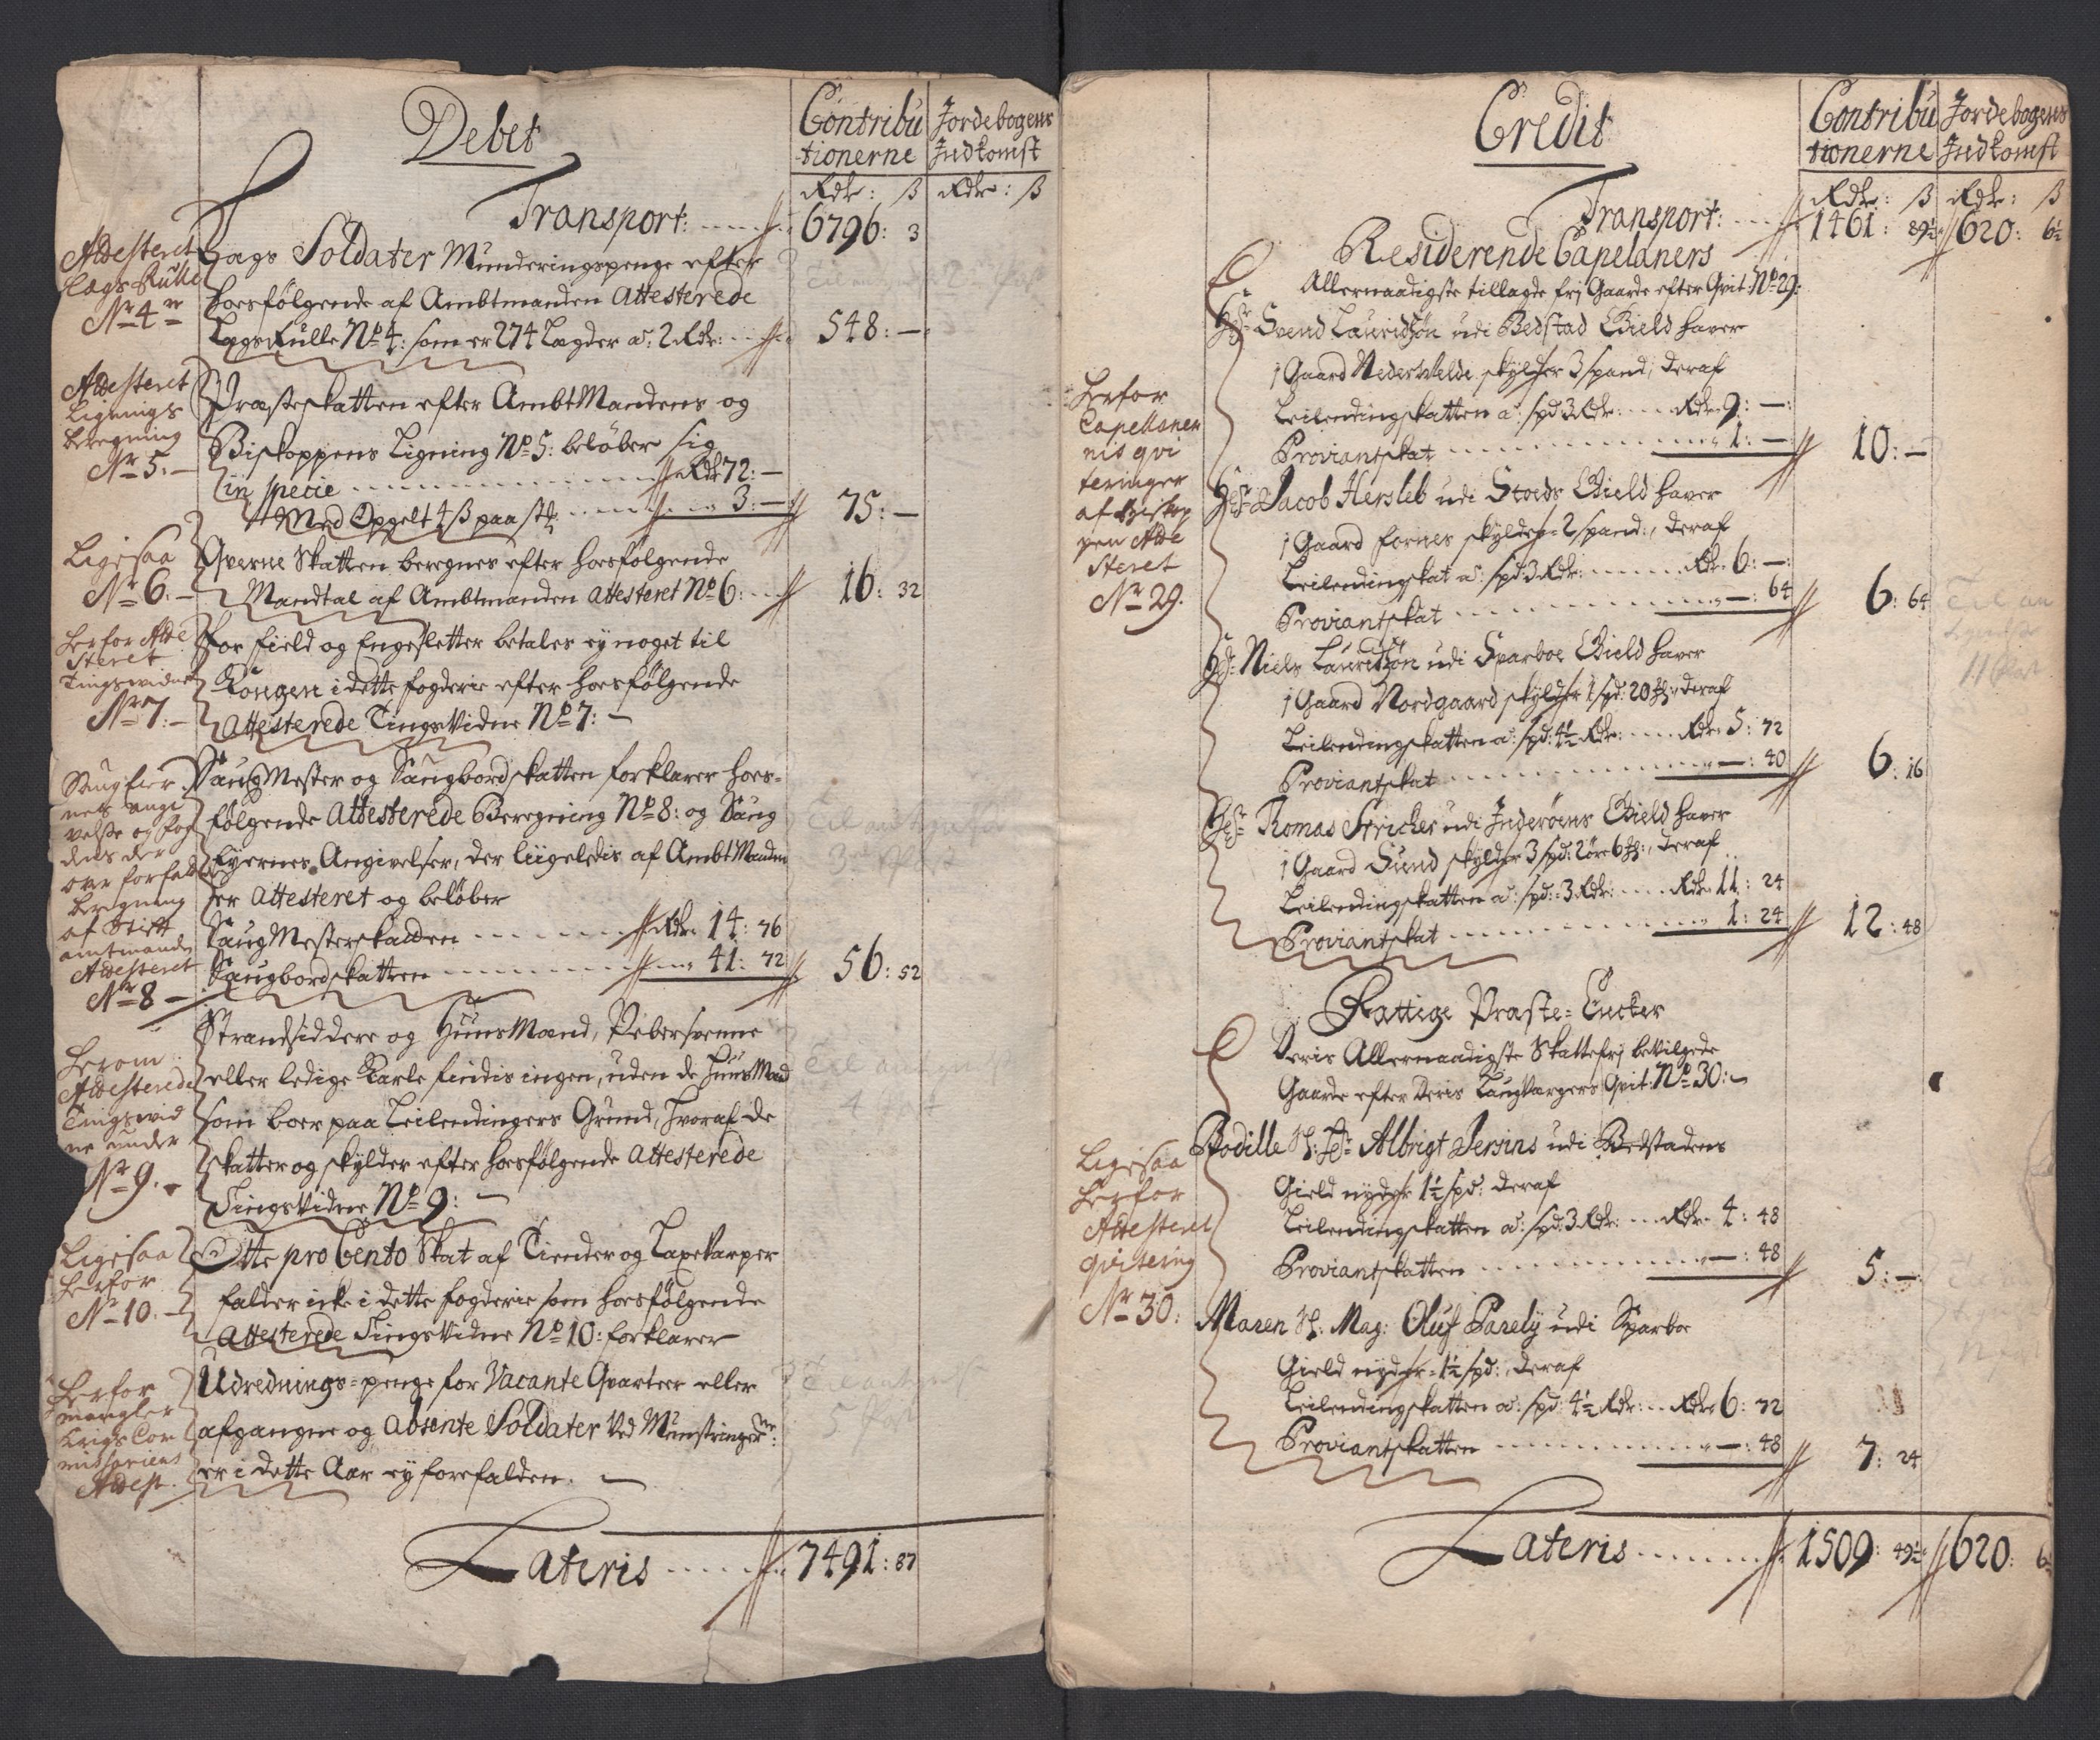 Debet
Contribu
tionerne
Jordebogens
Indkomst
Rdr: ß Rdr: ß
Transport: 6796: 3
Attesteret
Lægs Rulle
Nr 4
Lægs Soldater Munderingspenge efter
hosfølgende af Ambtmanden Attesterede
LægsRulle No 4: som er 274 Lægder a: 2 Rdr: 548: —
Attesteret
Lignings
Beregning
Nr 5: —
Præsteskatten efter AmbtMandens og
Biskoppens Ligning No 5: beløber sig
in specie Rdr 72: —
Med Opgelt 4 ß paa stk 3: — 75: —
Ligesaa
Nr 6: —
Qverne Skatten beregnes efter hosfølgende
Mandtal af Ambtmanden Attesteret No 6: 16: 32
herfor Atte
steret
Tingsvidne
Nr 7: —
For field og Engesletter betales ey noget til
Kongen i dette fogderie efter hosfølgende
Attesterede TingsVidne No 7: —
Saugeier
nes angi
velse og fog
dens der
over forfatted
beregning
af Stift
amtmanden
Attesteret
Nr 8 —
SaugMester og Saugbordskatten forklarer hos-
følgende Attesterede Beregning No 8: og Saug
Eyernes Angivelser, der liigeledis af AmbtManden
er Attesteret og beløber
SaugMesterskatten Rdr 14: 76
Saugbordskatten 41: 72 56: 52
herom
Attesterede
Tingsvid
ne under
Nr 9.
Strandsiddere og HuusMænd, Pebersvenne
eller ledige Karle findis ingen, uden de HuusMænd
som boer paa Leilendingers Grund, hvoraf de
skatter og skylder efter hosfølgende Attesterede
TingsVidne No 9: —
Ligesaa
herfor
Nr 10. —
Otte pro Cento Skat af Tiender og Laxevarper
falder icke i dette fogderie som hosfølgende
Attesterede TingsVidne No 10: forklarer
herfor
mangler
Krigs Com
missariens
Attest.
Udrednings-penge for Vacante Qvarteer eller
afgangne og Absente Soldater Ved Mynstringer
er i dette Aar ey forefalden. —
Lateris 7491: 87
Credit
Contribu
tionerne
Jordebogens
Indkomst
Rdr: ß Rdr: ß
Transport: 1461: 89½ 620: 6½
Residerende Capelaners
Allernaadigste tillagde frj Gaarde efter Qvit: No 29:
herfor
Capellaner
nis qvi
teringer
af Biskop
pen Atte
steret
Nr 29.
Hr Svend Lauridtzøn udi Bedstad Gield haver
1 Gaard NederWelde skylder 3 spand, deraf
Leilendingskatten a: spd 3 Rdr: Rdr 9: —
Proviantskat 1: — 10: —
Hr Jacob Hersleb udi Stods Gield haver
1 Gaard Fornes skylder 2 spand:, deraf
Leilendingskat a: spd: 3 Rdr: Rdr 6: —
Proviantskat —: 64 6: 64
Hr Niels Lauridtzøn udi Sparboe Gield haver
1 Gaard Nordgaard skylder 1 spd: 20 deraf
Leilendingskatten a: spd: 4½ Rdr: Rdr 5: 72
Proviantskat —: 40 6: 16
Hr Tomas Stricker udi Inderøens Gield haver
1 Gaard Sund skylder 3 spd: 2 øre 6 deraf
Leilendingskatten a: spd: 3 Rdr: Rdr 11: 24
Proviantskat 1: 24 12: 48
Fattige Præste-Encker
Deris Allernaadigste Skattefrj beVilgede
Gaarde efter Deris LaugVærgers Qvit: No 30: —
Ligesaa
herfor
Attesteret
qvitering
Nr 30:
Bodille Sl: Hr Albrigt Jersins udi Bedstadens
Gield nyder 1½ spd: deraf
Leilendingskatten a: spd: 3 Rdr: Rdr 4: 48
Proviantskatten —: 48 5: —
Maren Sl: Mag: Oluf Parely udi Sparboe
Gield nyder 1½ spd:, deraf
Leilendingskatten a: spd 4½ Rdr: Rdr 6: 72
Proviantskatten —: 48 7: 24
Lateris 1509: 49½ 620: 6½